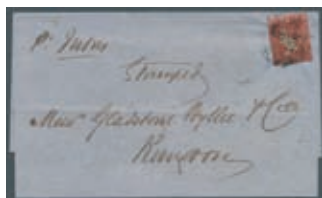 Pr Indus
Stamped
Messrs Gladstone Wyllie & Co
Rangoon